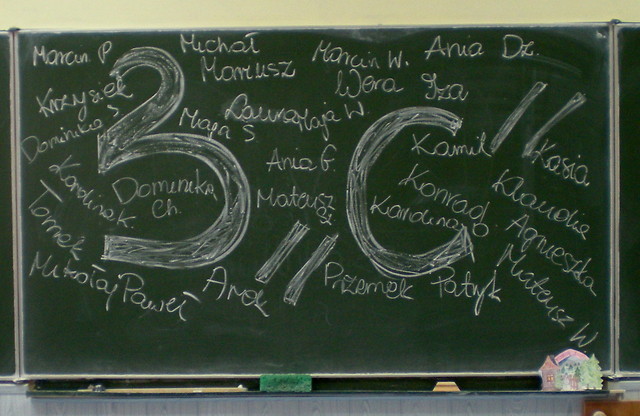 Marcin P.
Michał
Mariusz
Marcin W.
Ania Dz.
Wera Iza
Krzysiek
Dominika S
Maja S
Laura Maja W
Kamil
Kasia
Ania G.
Karolina K.
Dominika
Ch.
Mateusz
Konrad
Karolina
Klaudia
Agnieszka
Tomek
Mikołaj
Paweł
Arek
Przemek
Patryk
Mateusz W
„3 C"